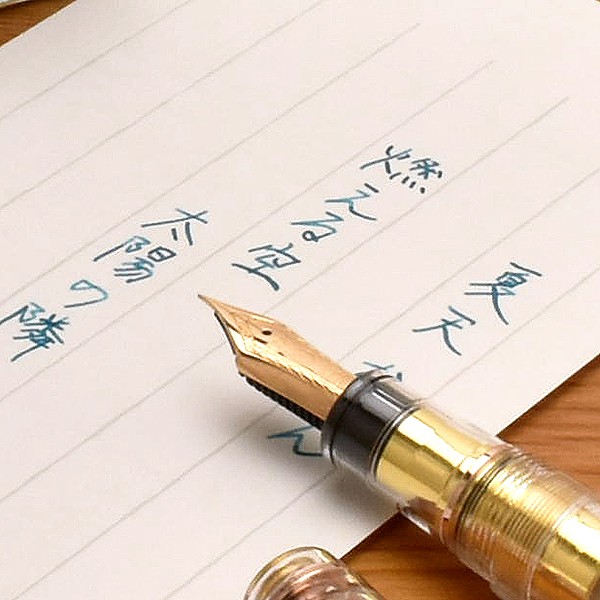 夏天
燃える空
太陽の隣